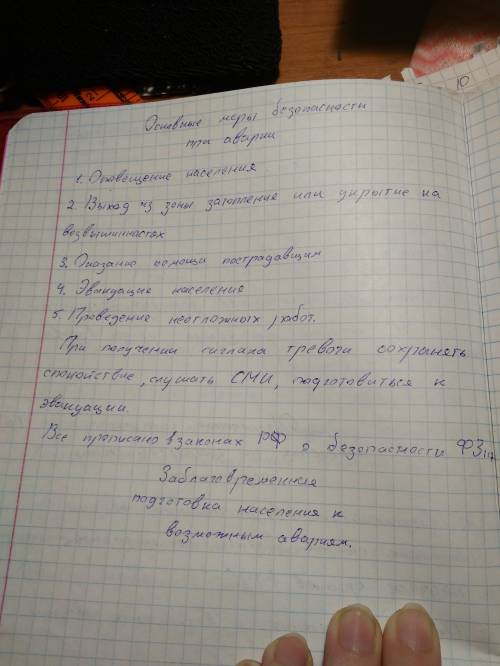 10
Основные меры безопасности
при аварии
1. Оповещение населения
2. Выход из зоны затопления или укрытие на
возвышинностах
3. Оказание помощи пострадавшим
4. Эвакуация населения
5. Проведение неотложных работ.
При получении сигнала тревоги сохранять
спокойствие, слушать СМИ, подготовиться к
эвакуации.
Все прописано в законах РФ о безопасности ФЗ
Заблаговременная
подготовка населения к
возможным авариям.